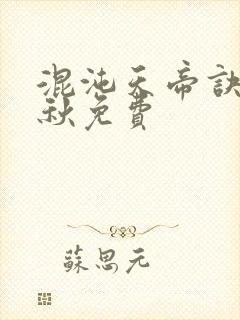 混沌天帝訣
秋免費
蘇思元